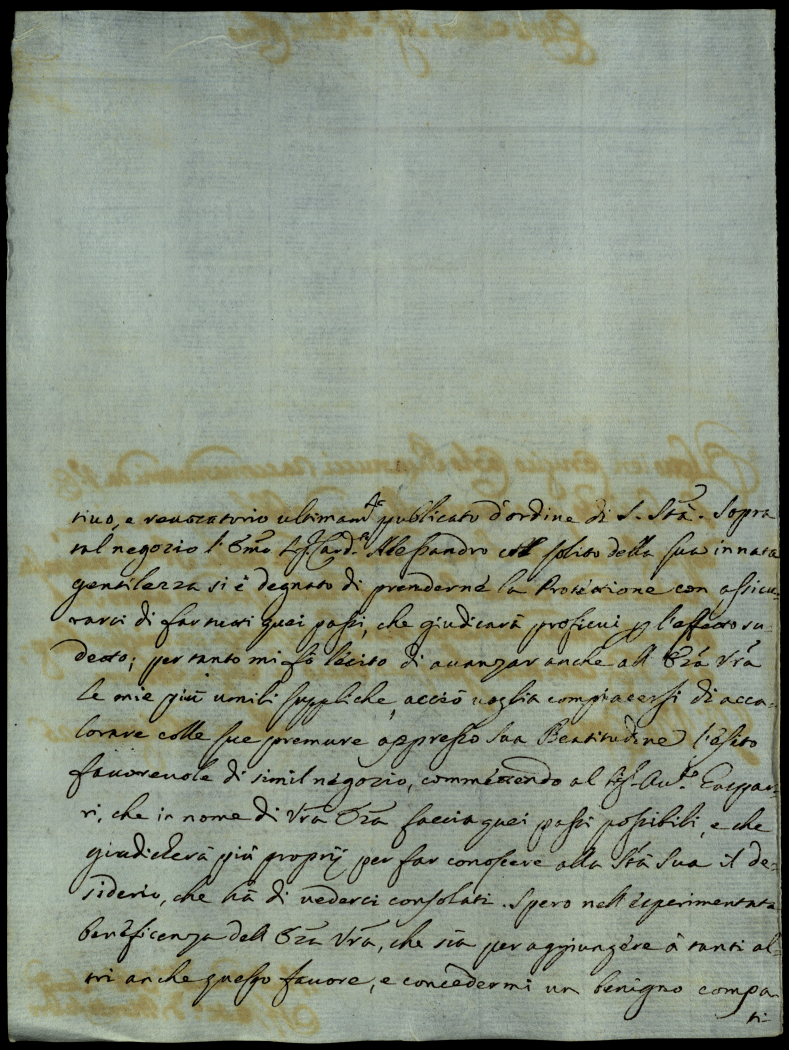 tiuo, e reuocatorio ultimam.te publicato d'ordine di S. Stà. Sopra
tal negozio l'Emo Sig.r Card.l Alessandro col solito della sua innata
gentilezza si è degnato di prenderne la Protettione con assicu-
rarci di far tutti quei passi, che giudicarà proficui p l'effetto su-
detto; per tanto mi fò lecito di auanzar anche all' Eza Vra
le mie più umili suppliche, acciò uoglia compiacersi di acca-
lorare colle sue premure appresso sua Beatitudine l'esito
fauoreuole di simil negozio, commettendo al Sig. Au.to Gaspar-
ri, che in nome di Vra Eza faccia quei passi possibili, e che
giudicherà più proprij per far conoscere alla Stà Sua il de-
siderio, che hà di uederci consolati. Spero nell' esperimentata
beneficenza dell' Eza Vra, che sia per aggiungere à tanti al-
tri anche questo fauore, e concedermi un benigno compa-
ti-